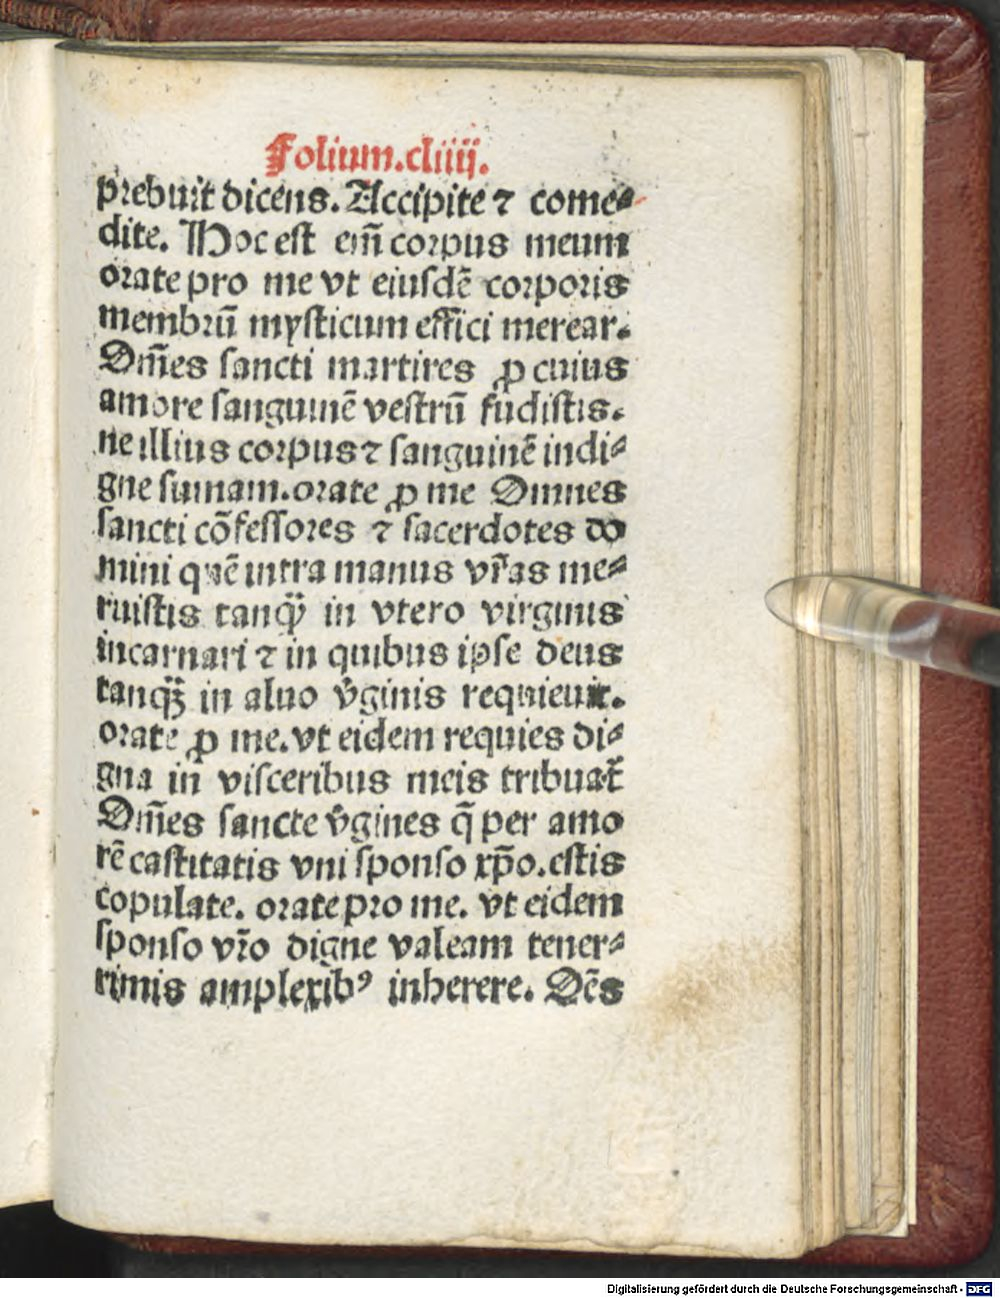 Folium.cliiij.
prebuit dicens. Accipite ⁊ come⸗
dite. Hoc est em̄ corpus meum
orate pro me vt eiusdē corporis
membrū mysticum effici merear.
Om̄es sancti martires ꝓ cuius
amore sanguinē vestrū fudistis.
ne illius corpus ⁊ sanguinē indi⸗
gne sumam. orate ꝓ me Omnes
sancti cōfessores ⁊ sacerdotes do
mini quē intra manus vr̄as me⸗
ruistis tanq̈̄ in vtero virginis
incarnari ⁊ in quibus ipse deus
tanqꝫ in aluo v̄ginis requieuit.
orate ꝓ me. vt eidem requies di⸗
gna in visceribus meis tribuat̄
Om̄es sancte v̄gines q̄ per amo
rē castitatis vni sponso xp̄o. estis
copulate. orate pro me. vt eidem
sponso vr̄o digne valeam tener⸗
rimis amplexibꝰ inherere. Oēs
Digitalisierung gefördert durch die Deutsche Forschungsgemeinschaft - DFG